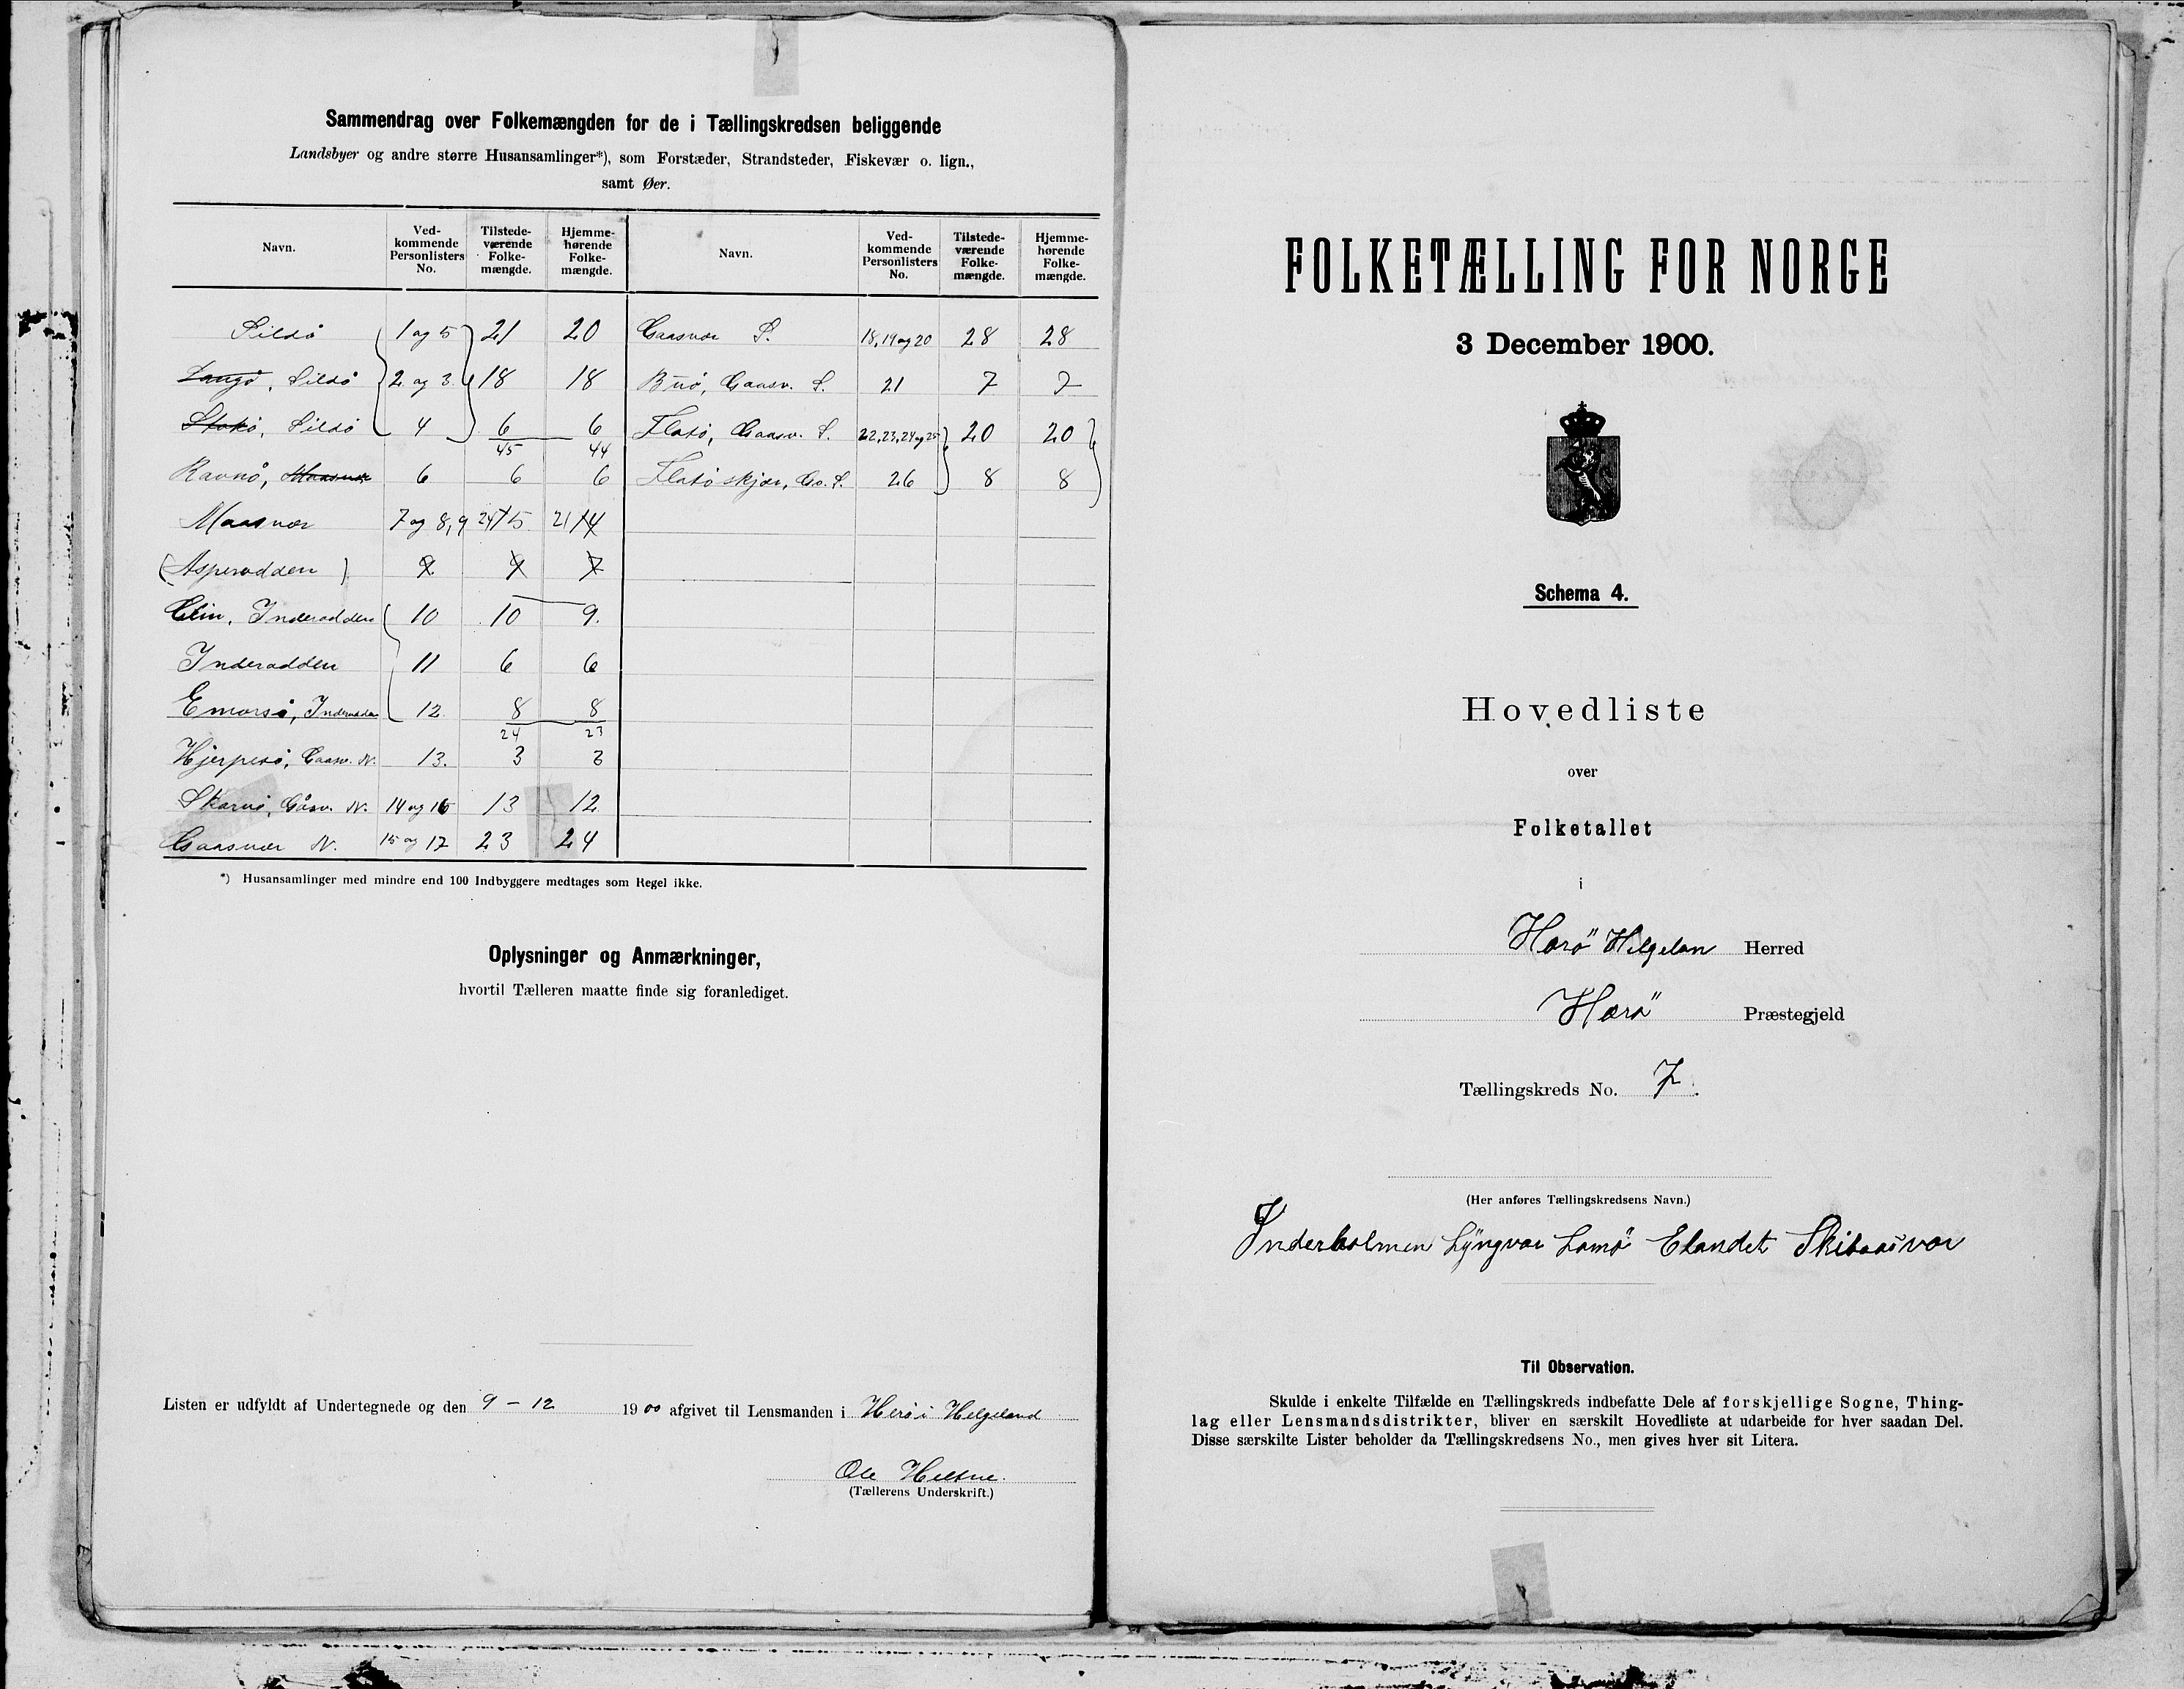 Sammendrag over Folkemængden for de i Tællingskredsen beliggende
Landsbyer og andre større Husansamlinger*), som Forstæder, Strandsteder, Fiskevær o. lign.,
samt Øer.
Navn. Ved-kommende Personlisters No. Tilstede-værende Folke-mængde. Hjemme-hørende Folke-mængde. Navn. Ved-kommende Personlisters No. Tilstede-værende Folke-mængde. Hjemme-hørende Folke-mængde.
Sildö 1 og 5 21 20 Gaasvær S. 18, 19 og 20 28 28
Langö, Sildö 2 og 3 18 18 Buö, Gaasv. S. 21 7 7
Stokö, Sildö 4 6 6 Flatö, Gaasv. S. 22, 23, 24 og 25 20 20
45 44
Ravnö, Maasvær 6 6 6 Flatöskjær, Ga. S. 26 8 8
Maasvær 7 og 8, 9 24 15 21 14
(Asperadden) 9 9 7
Inderadden 10 10 9.
Inderadden 11 6 6
Emarsö, Inderadden 12. 8 8
24 23
Hjerpesö, Gaasv. N. 13. 3 3
Skarvö, Gåsv. N. 14 og 16 13 12
Gaasvær N. 15 og 17 23 24
*) Husansamlinger med mindre end 100 Indbyggere medtages som Regel ikke.
Oplysninger og Anmærkninger,
hvortil Tælleren maatte finde sig foranlediget.
Listen er udfyldt af Undertegnede og den 9 - 12 1900 afgivet til Lensmanden i Herö i Helgeland
Ole
(Tællerens Underskrift.)
FOLKETÆLLING FOR NORGE
3 December 1900.
Schema 4.
Hovedliste
over
Folketallet
i
Herö Helgelan Herred
Herö Præstegjeld
Tællingskreds No. 7.
(Her anføres Tællingskredsens Navn.)
Inderholmen Lyngvær Lamö Elandet Skibaasvær
Til Observation.
Skulde i enkelte Tilfælde en Tællingskreds indbefatte Dele af forskjellige Sogne, Thing-
lag eller Lensmandsdistrikter, bliver en særskilt Hovedliste at udarbeide for hver saadan Del.
Disse særskilte Lister beholder da Tællingskredsens No., men gives hver sit Litera.